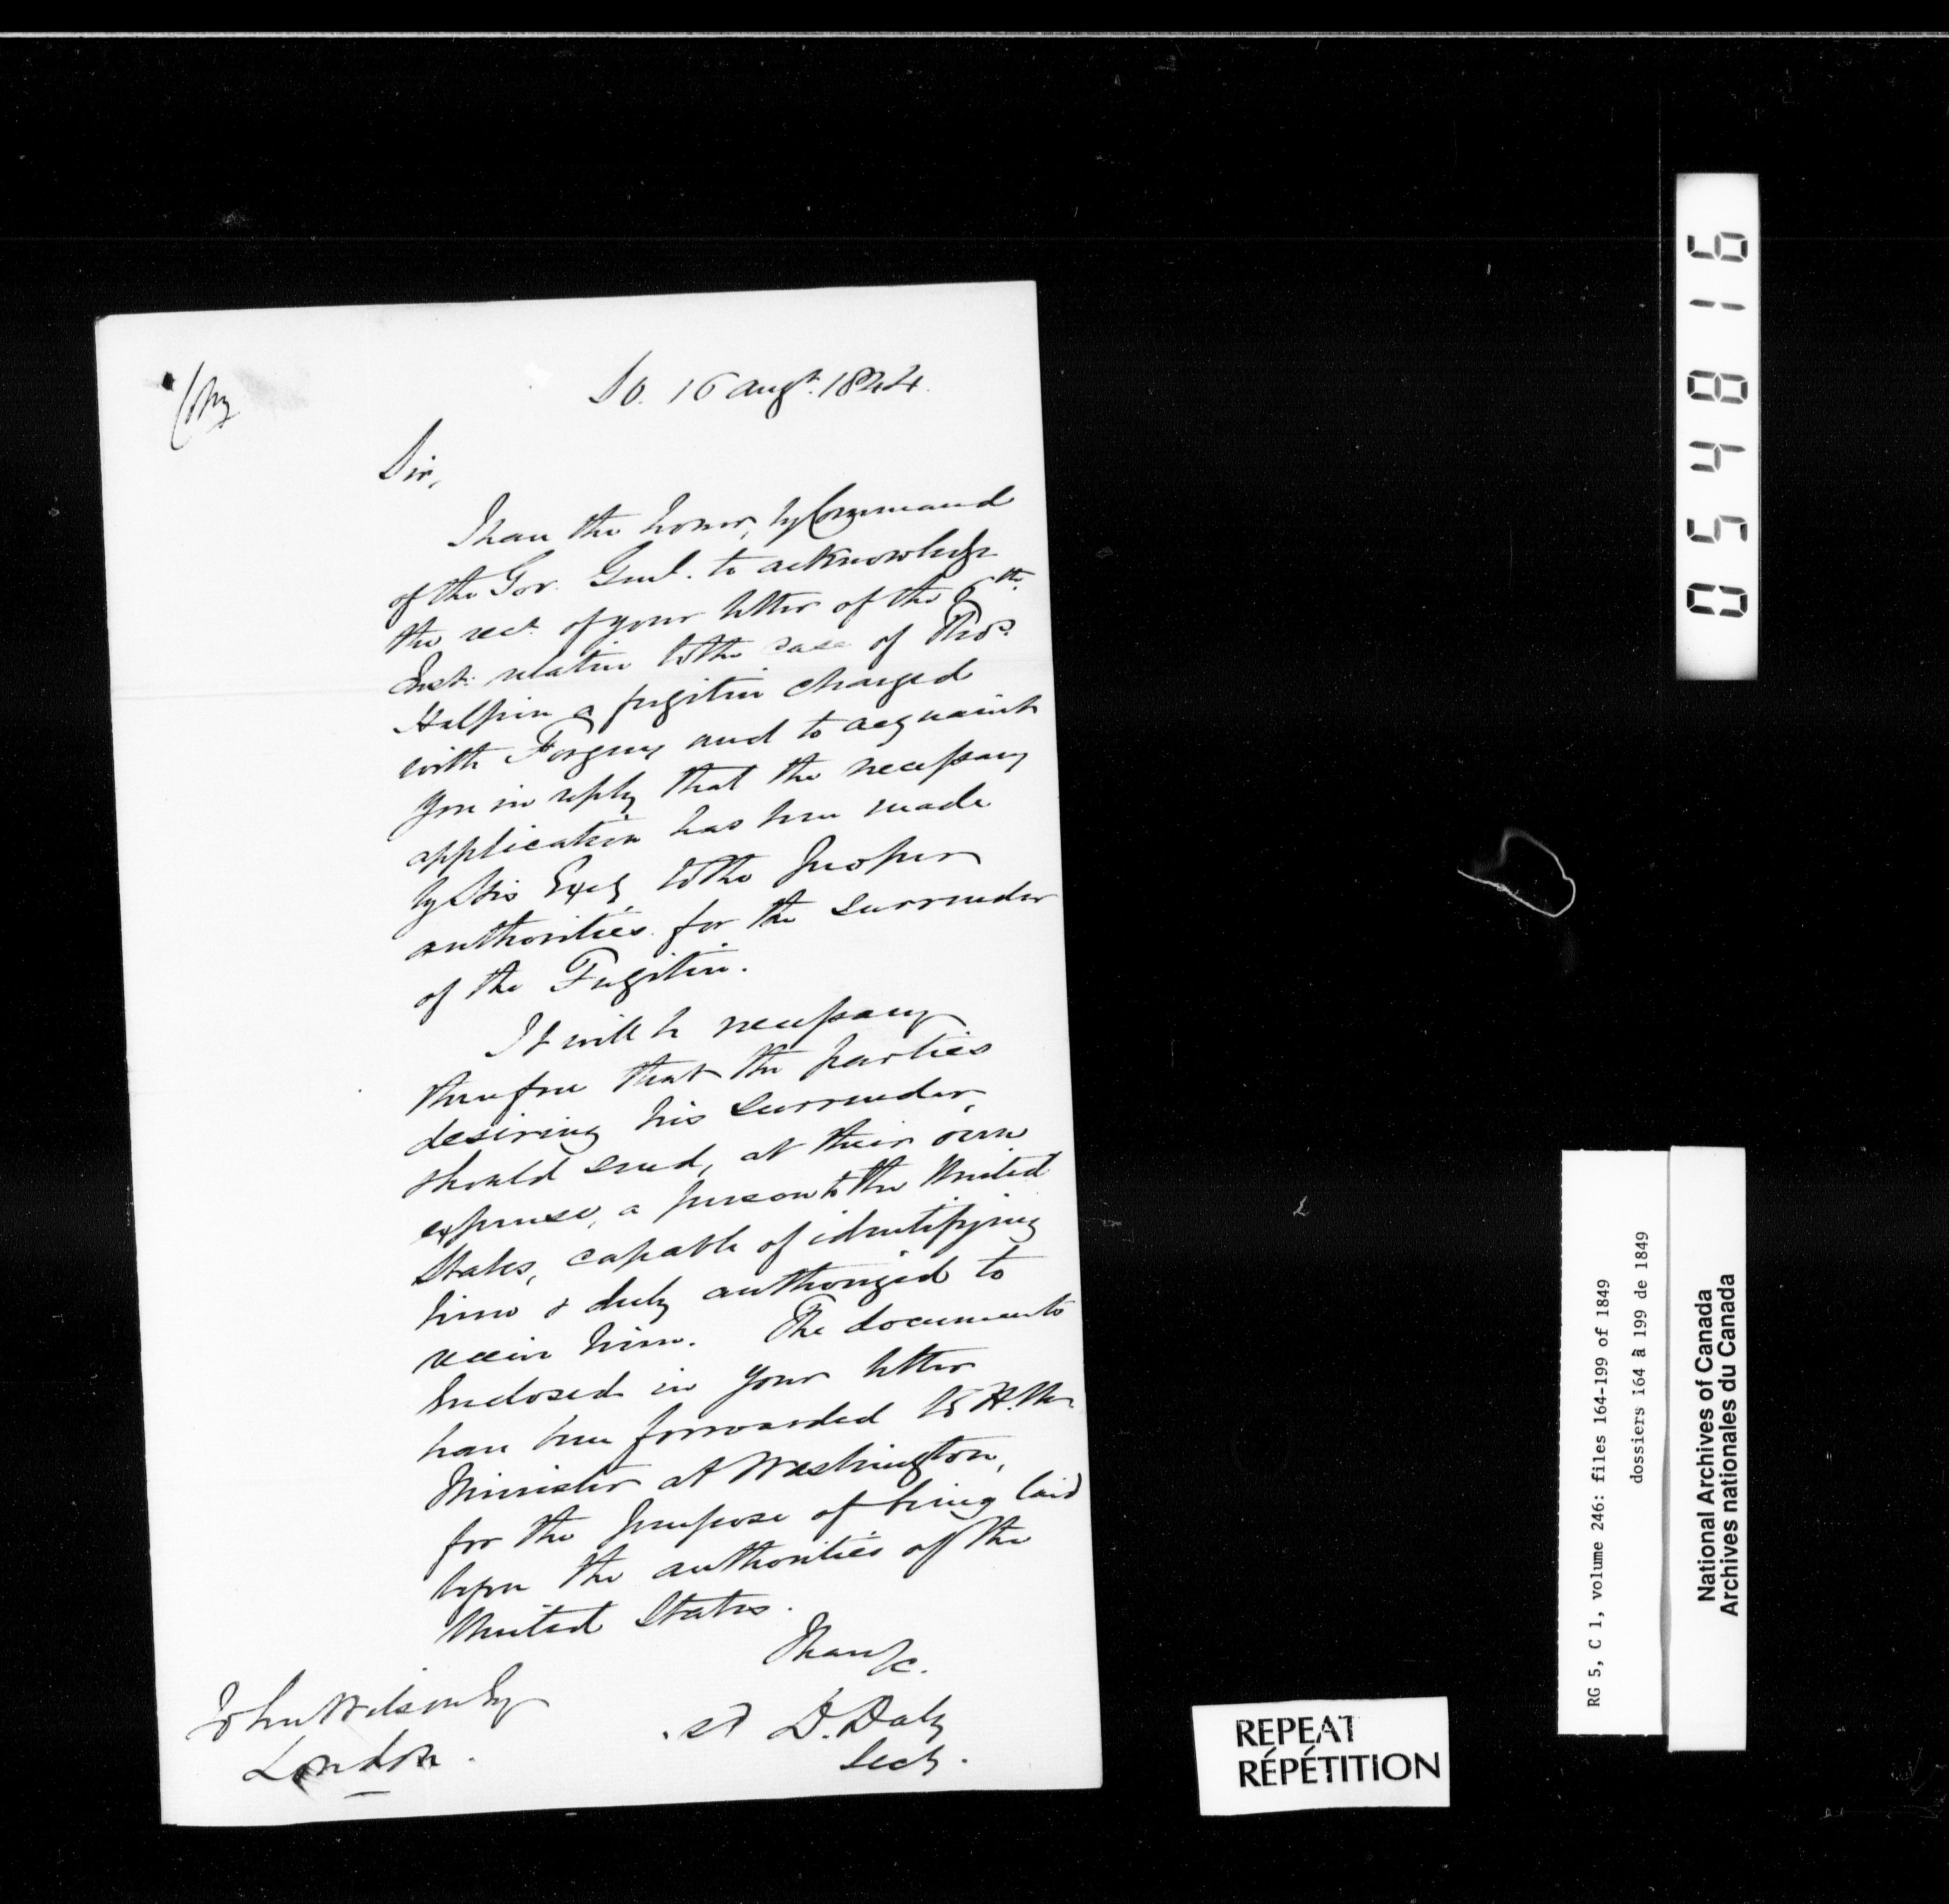 Copy
S.O. 16 Augt. 1844.
Sir,
I have the honor, by Command
of the Gov. Genl. to acknowledge
the rect. of your letter of the 6th.
Inst. relative to the case of Thos.
Halpin a fugitive charged
with Forgery and to acquaint
you in reply that the necessary
application has been made
by His Excy. to the proper
authorities for the surrender
of the Fugitive.
It will be necessary
therefore that the parties
desiring his surrender,
should send, at their own
expense, a person to the United
States, capable of identifying
him & duly authorized to
receive him. The documents
Enclosed in your letter
have been forwarded to H.M.
Minister at Washington,
for the purpose of being laid
before the authorities of the
United States.
I have &c.
sd D. Daly
Secy.
John Wilson Esq
London.
054816
RG 5, C 1, volume 246: files 164-199 of 1849
dossiers 164 à 199 de 1849
National Archives of Canada
Archives nationales du Canada
REPEAT
RÉPÉTITION